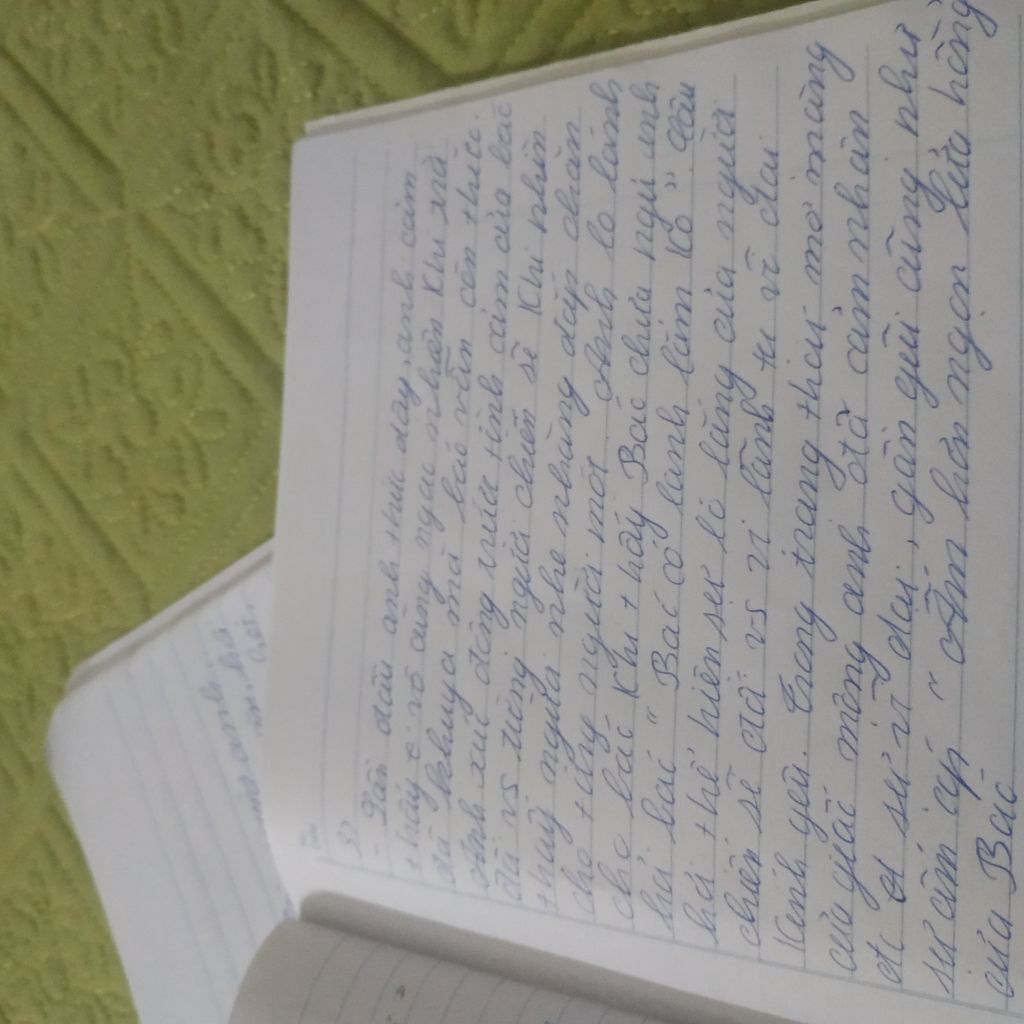 - Lần đầu anh thức dậy, anh cảm
thấy c vô cùng ngạc nhiên khi trời
đã khuya mà bác vẫn còn thức.
Anh xúc động trước tình cảm của bác
đối vs những người chiến sĩ khi nhìn
thấy người nhẹ nhàng dắp chăn
cho từng người một. Anh lo lắng
cho bác khi thấy Bác chưa ngủ anh
hỏi bác " Bác có lạnh lắm kо" câu
hỏi thể hiện sự lo lắng của người
chiến sĩ đối vs vị lãnh tụ vĩ đại
kính yêu. Trong trạng thái mơ màng
của giấc mộng anh đã cảm nhận
đc sự vĩ đại, gần gũi cũng như
sự ấm áp " Ấm hơn ngọn lửa hồng
của Bác